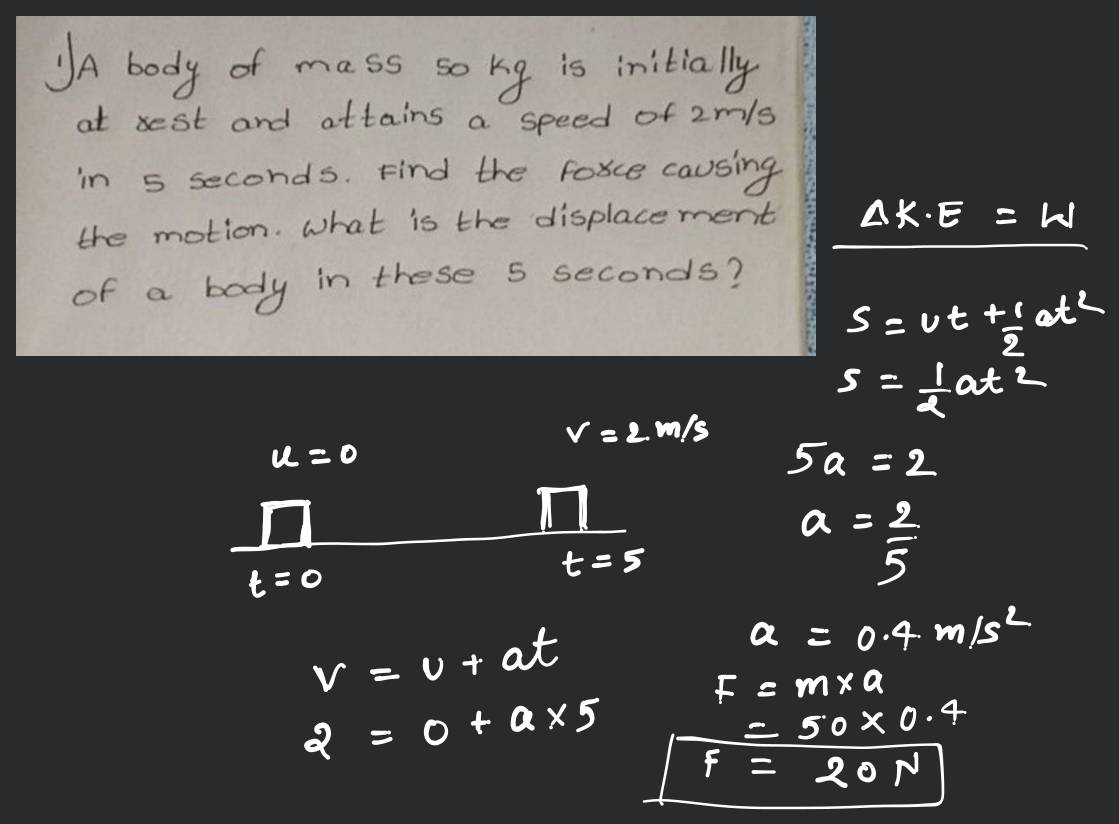 1) A body of mass 50 kg is initially
at rest and attains a speed of 2m/s
in 5 seconds. Find the force causing
the motion. What is the displacement
of a body in these 5 seconds?
ΔK·E = W
S = ut + 1/2 at²
S = 1/2 at²
u = 0
v = 2 m/s
t = 0
t = 5
v = u + at
2 = 0 + a × 5
5a = 2
a = 2/5
a = 0.4 m/s²
F = m × a
= 50 × 0.4
F = 20 N